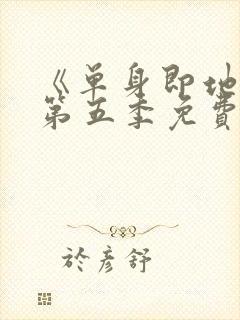 《单身即地
第五季免费
於彦舒